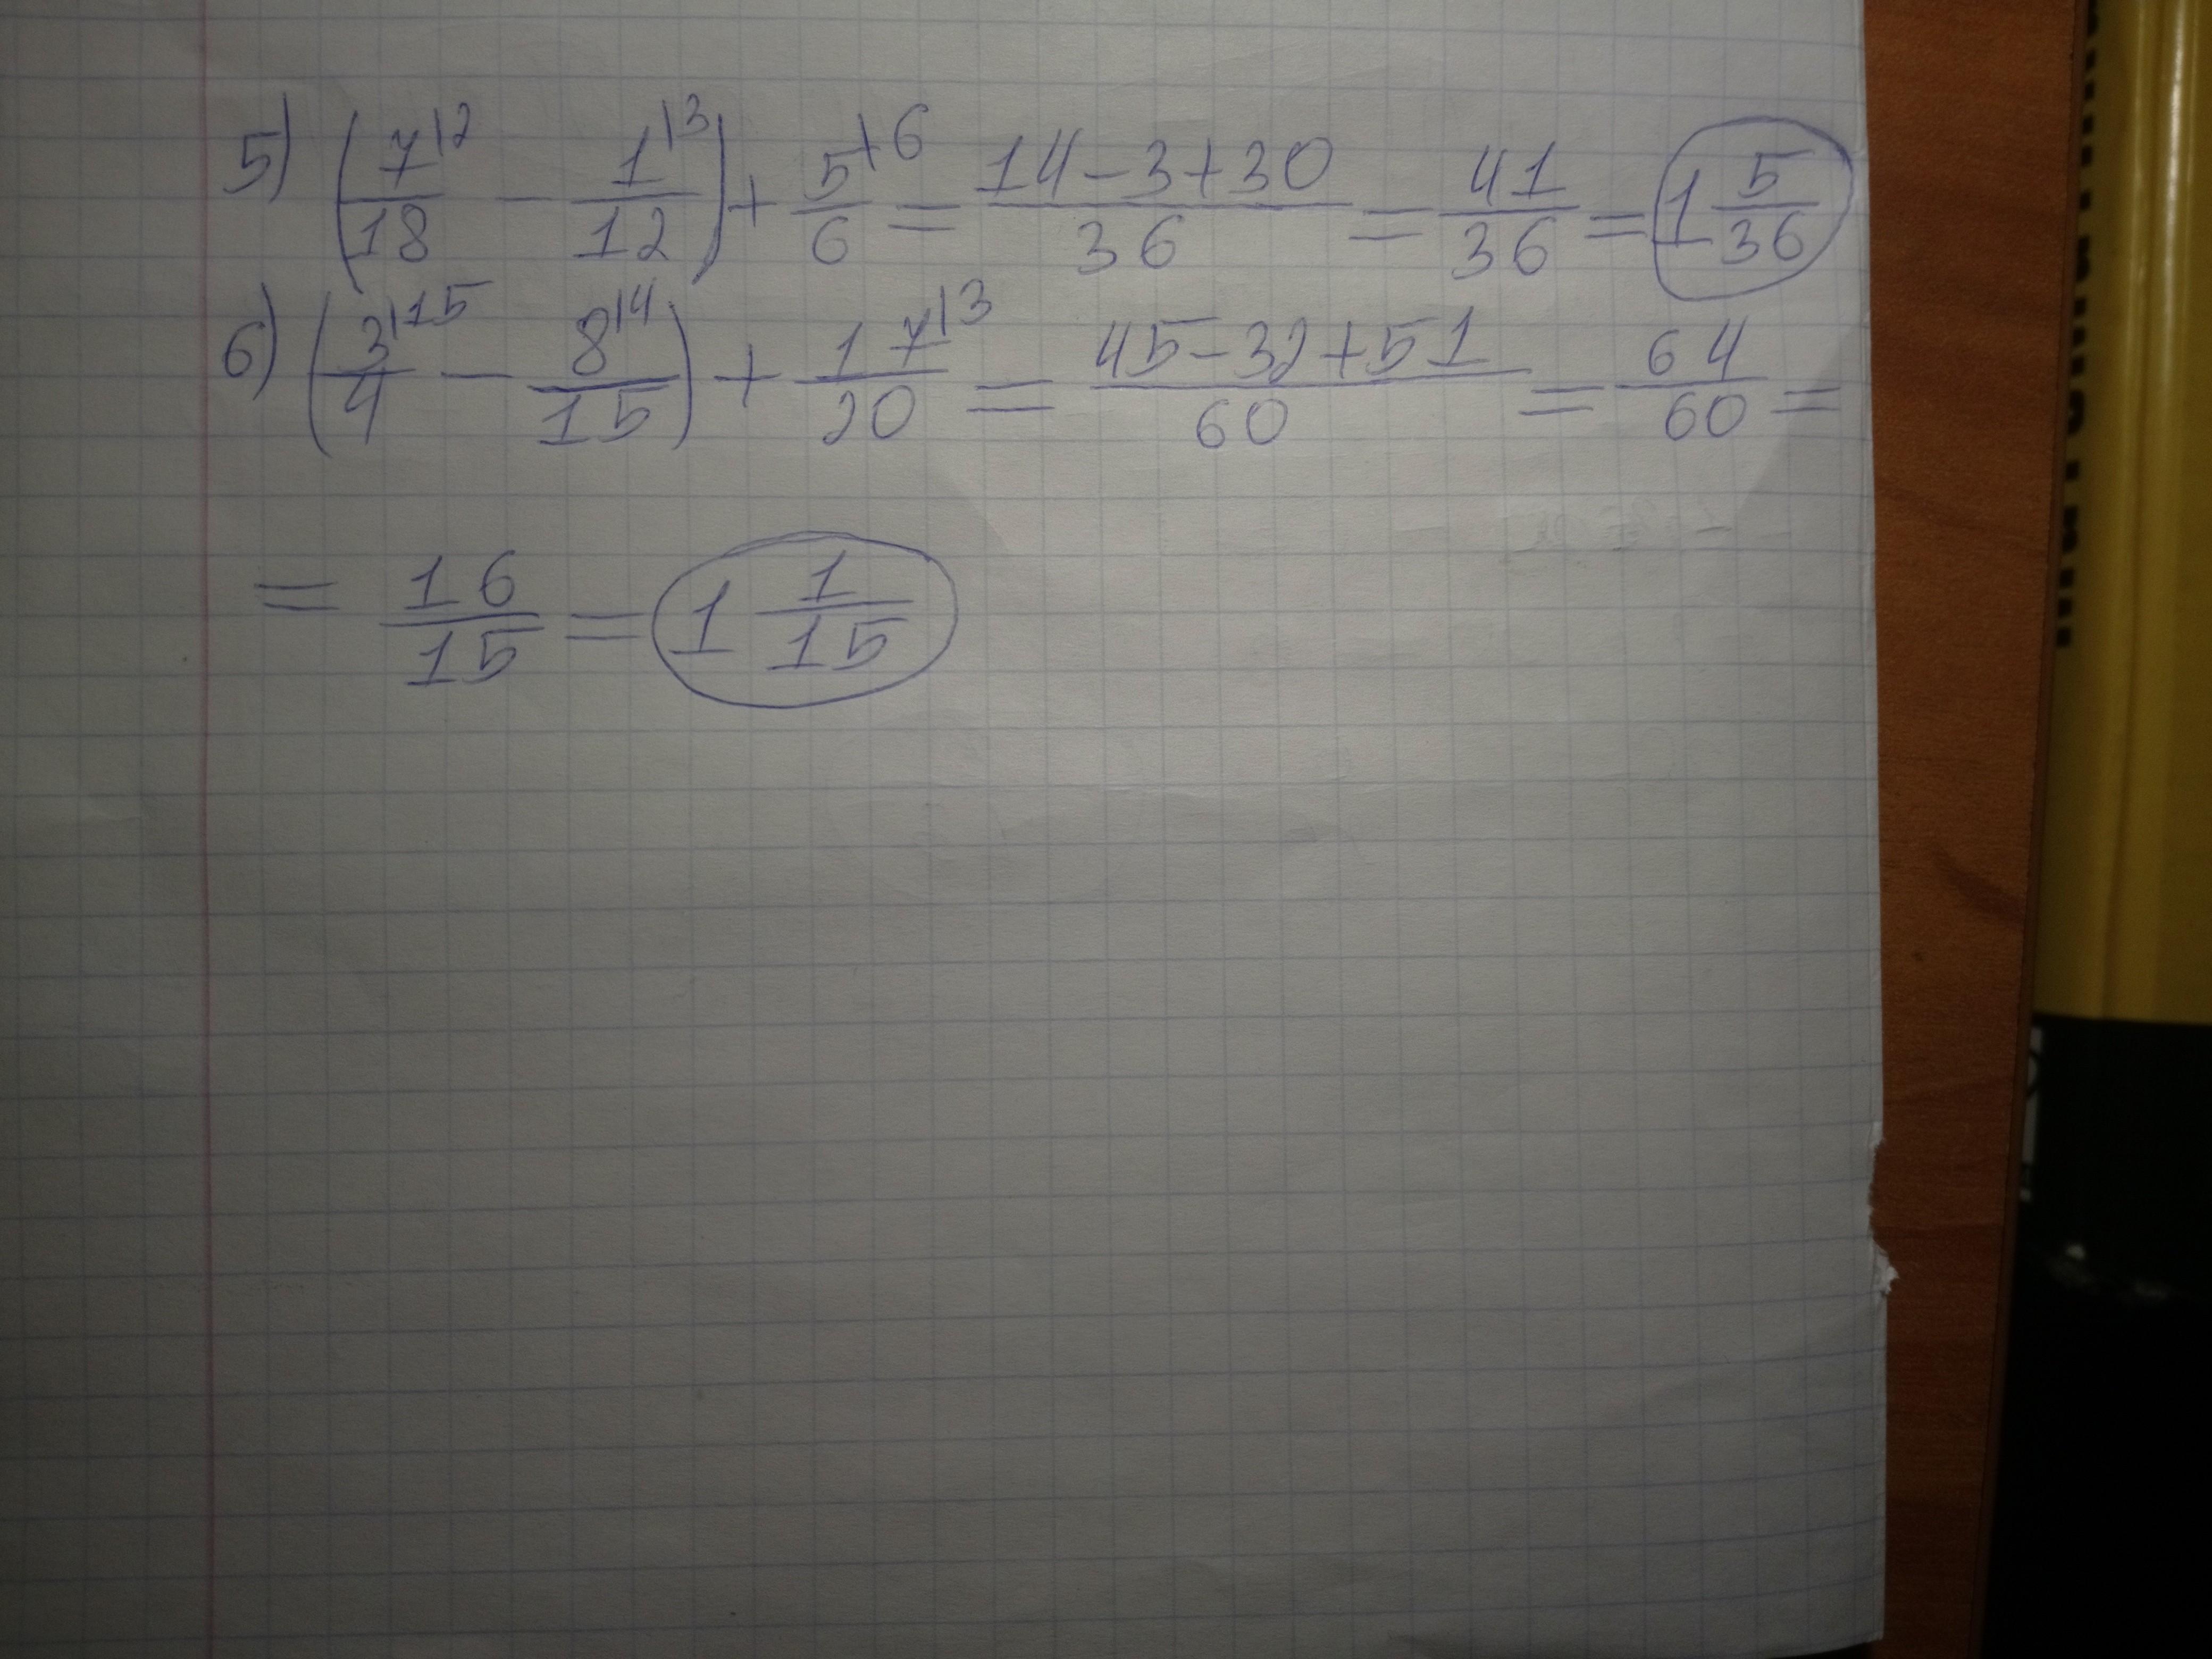 5) (7|2/18 − 1|3/12) + 5|6/6 = 14−3+30/36 = 41/36 = 1 5/36
6) (3|15/4 − 8|4/15) + 17|3/20 = 45−32+51/60 = 64/60 =
= 16/15 = 1 1/15